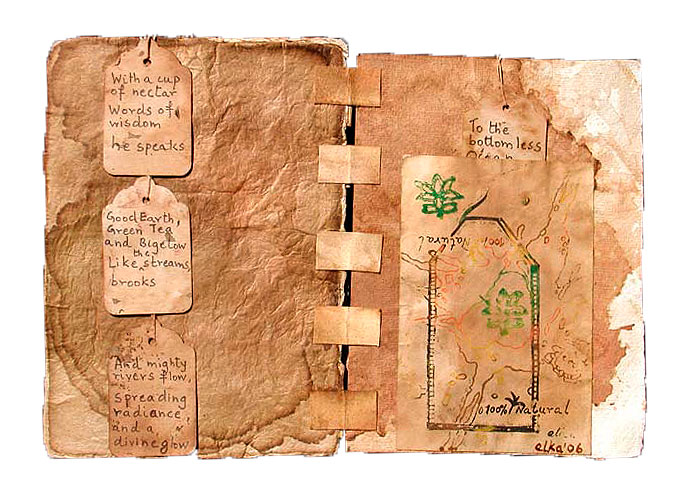 With a cup
of nectar
Words of
wisdom
he speaks
Good Earth,
Green Tea
and Bigelow
the
Like streams,
brooks
And mighty
rivers flow,
spreading
radiance,
and a
divine glow
To the
bottomless
Ocean
100% Natural
100% Natural
elka
elka'06